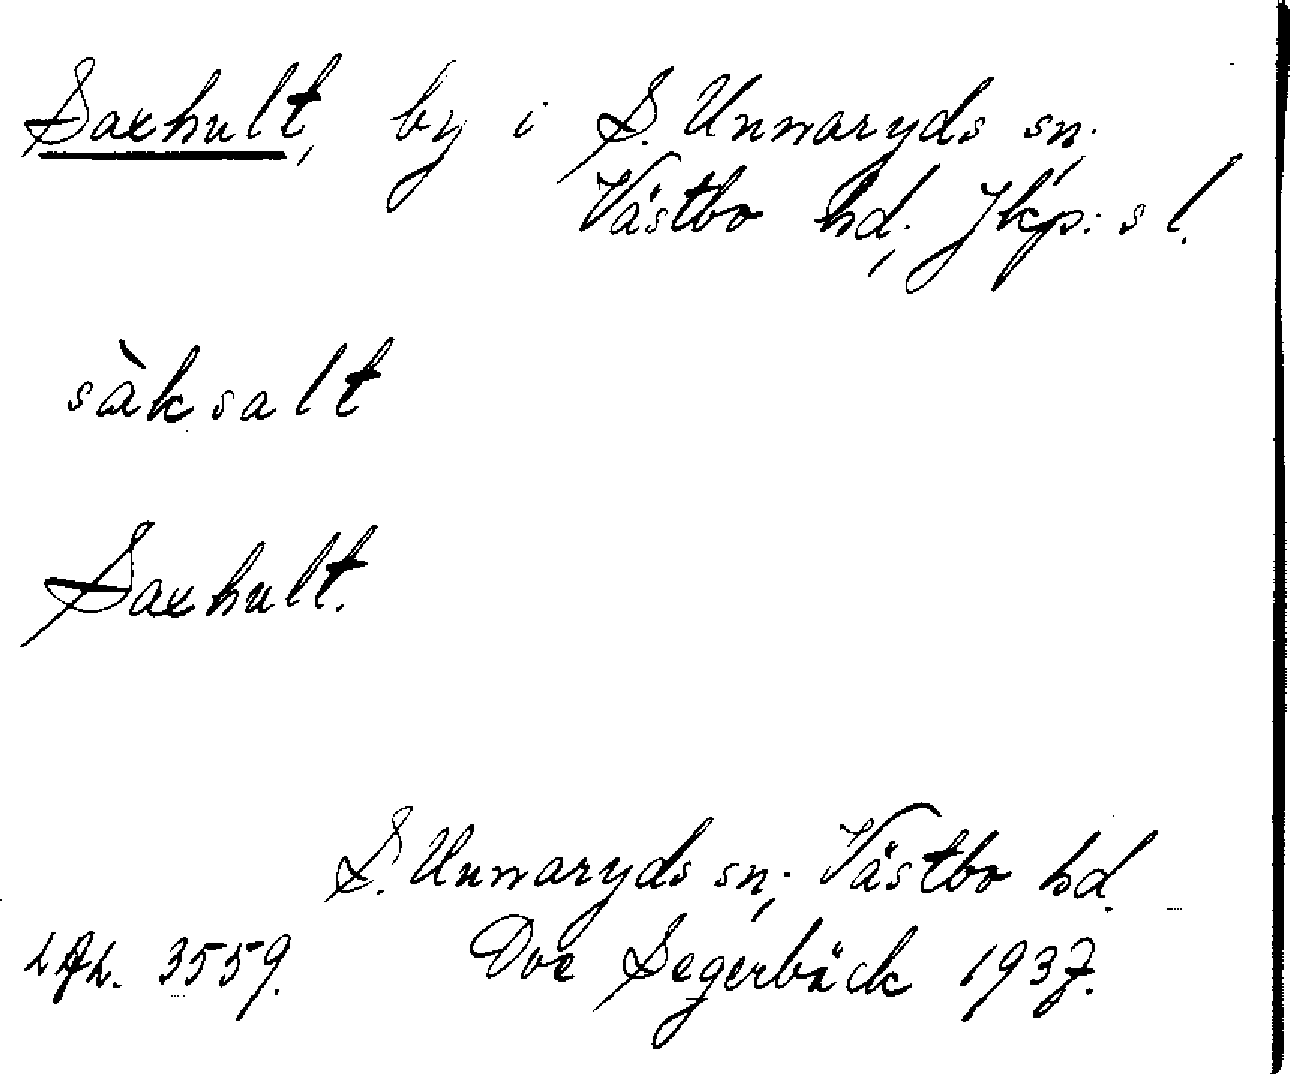 Saxhult, by i S. Unnaryds sn;
Västbo hd; Jkp: s l.
sàksalt
Saxhult.
S. Unnaryds sn; Västbo hd.
3559. Doe Segerbäck 1937.